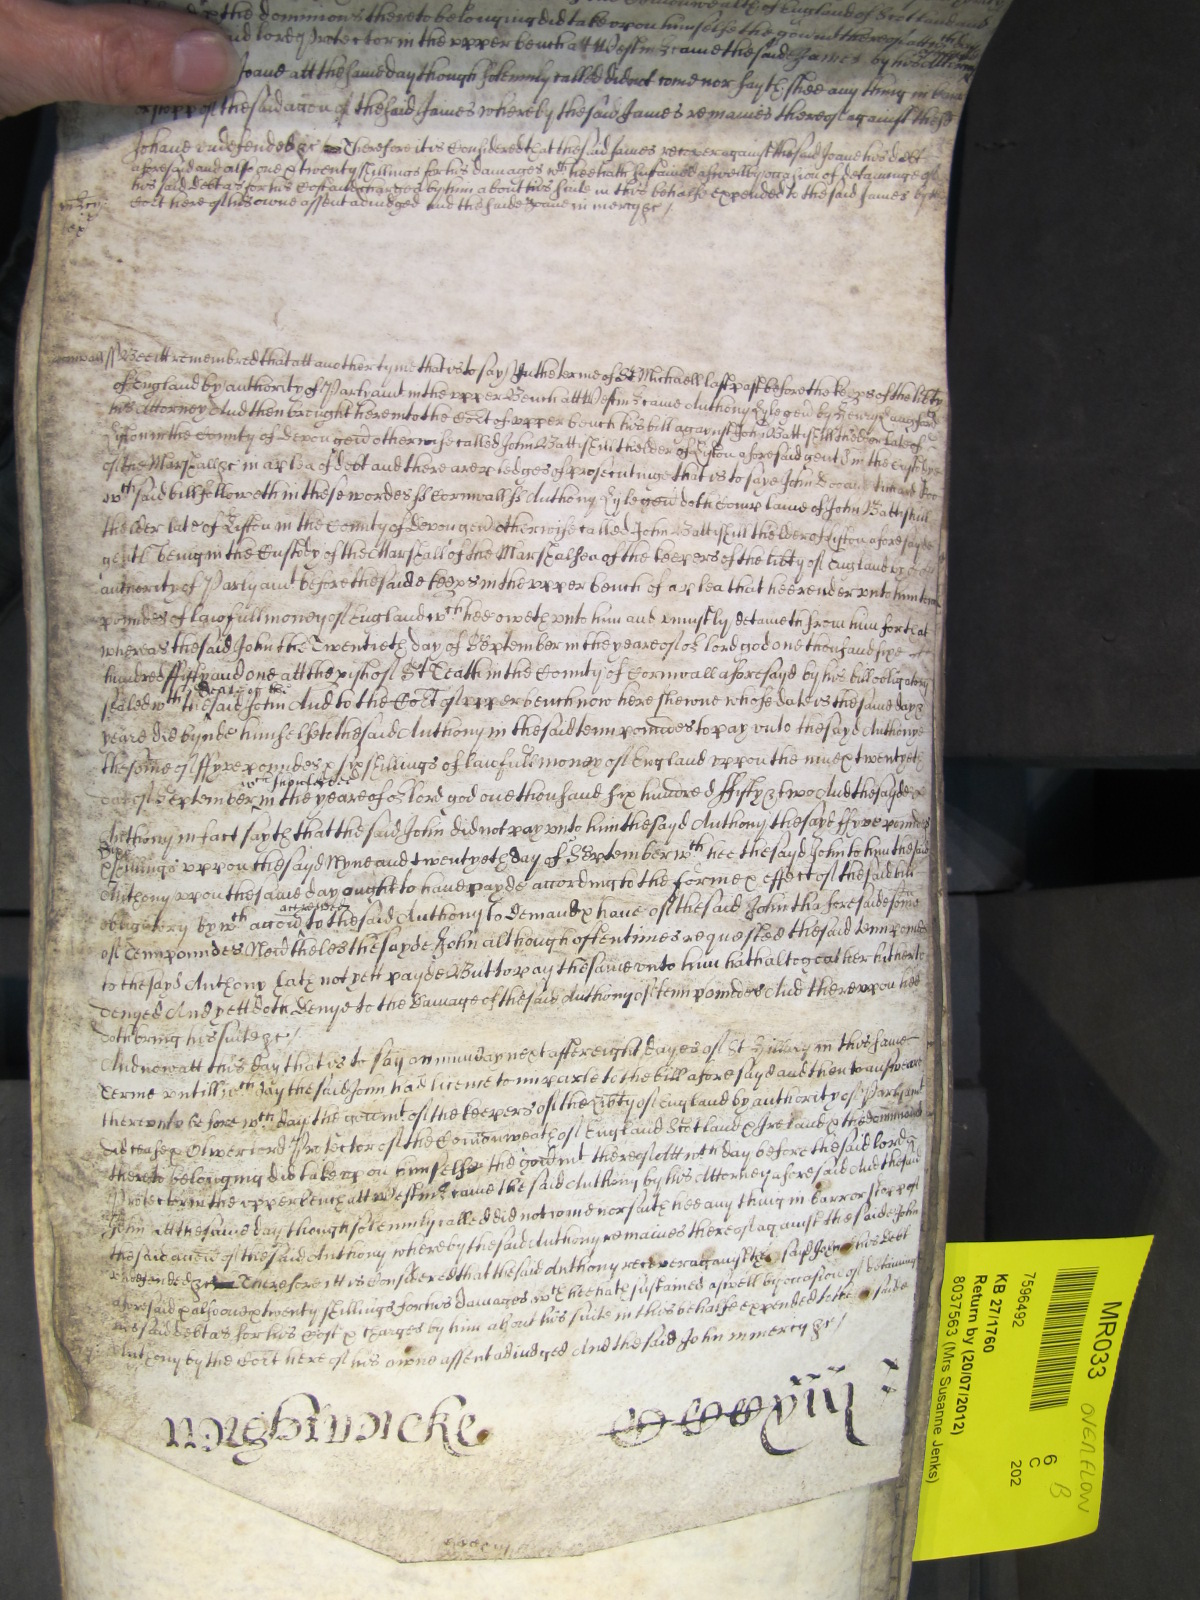 the dominions thereto belonging did take upon himselfe the
lord Protector in the upper bench att Westm came the said James by his
Joane att the same day though solemnly called did not come nor sayth shee any thing in
of the said accon of the said James whereby the said James remaines thereof against the said
Johane undefended &c Therefore it is Considered that the said James recover against the said Joane his debt
aforesaid and also one & twenty shillings for his damages wch hee hath susteined aswell by occasion of deteininge of
his said debt as for his Costs and charges by him about his suite in this behalfe expended to the said James by the
Cort here of his owne assent adiudged and the said Joane in mercy &c /
ss Bee itt remembred that att another tyme that is to say In the terme of St Michaell last past before the keepers of the liberty
of England by authority of Parlyamt in the upper Bench att Westm came Anthony Lyle gent by
his Attorney And then brought here into the Cort of upper bench his bill against John Battishill the elder late of
Lifton in the County of Devon gent otherwise called John Battishill the elder of Lifton aforesaid gent in the Custody
of the Marshall &c in a plea of debt and there are pledges of prosecutinge that is to saye John Doe and Richard Roe
wch said bill followeth in these wordes ss Cornwall ss Anthony Lyle gent doth Complaine of John Battishill
the elder late of Lifton in the County of Devon gent otherwise called John Battishill the elder of Lifton aforesayd
gent being in the Custody of the Marshall of the Marshalsea of the keepers of the libty of England by
authority of Parlyamt before the saide keeps in the upper bench of a plea that hee render unto him tenn
poundes of lawfull money of England wch hee oweth unto him and uniustly deteineth from him for that
whereas the said John the Twentieth day of September in the yeare of or lord god one thousand six
hundred ffifty and one att the pish of St Teath in the County of Cornwall aforesayd by his bill obligatory
sealed wth the seale of the said John And to the Cort of upper bench now here shewne whose date is the same day &
yeare did bynde himselfe to the said Anthony in the said tenn poundes to pay unto the sayd Anthonye
the some of ffyve poundes & six shillings of lawfull money of England uppon the nine & twentyeth
day of September wch should bee in the yeare of or lord god one thousand six hundred ffifty & two And the sayde
Anthony in fact sayth that the said John did not pay unto him the sayd Anthony the sayd ffyve poundes
six shillings uppon the sayd Nyne and twentyeth day of September wch hee the sayd John to him the said
Anthony uppon the same day ought to have payde according to the forme & effect of the said bill
obligatory by wch accon accrewed to the said Anthony to Demaund & have of the said John the aforesaid some
of Tenn poundes Neverthelesse the sayde John although oftentimes requested the said tenn poundes
to the sayd Anthony hath not yett payde But to pay the same unto him hath altogeather hitherto
denyed And yett doth Denye to the Damage of the said Anthony of tenn poundes And thereupon hee
doth bring his suite &c /
And now att this day that is to say on munday next after eight dayes of St Hillary in this same
Terme untill wch day the said John had licence to imparle to the bill aforesayd and then to answeare
thereunto before wch day the govmt of the keepers of the libty of England by authority of Parlyamt
did cease & Oliver lord Protector of the Comonwealth of England Scotland & Ireland & the dominions
thereto belonging did take upon himselfe the govmt thereof Att wch day before the said lord
Protector in the upper bench att Westm came the said Anthony by his Attorney aforesaid And the said
John att the same day though solemnly called did not come nor saith hee any thing in barr or stopp of
the said accon of the said Anthony whereby the said Anthony remaines thereof against the saide John
undefended &c Therefore itt is Considered that the said Anthony recover against the said John his debt
aforesaid & also one & twenty shillings for his damages wch hee hath susteined aswell by occasion of detaining
his said debt as for his Costs & Charges by him about his suite in this behalfe expended to the saide
Anthony by the Cort here of his owne assent adiudged And the said John in mercy &c /
Wightwicke
MR033
OVERFLOW
B
6
C
202
7596492
KB 27/1760
Return by (20/07/2012)
8037563 (Mrs Susanne Jenks)